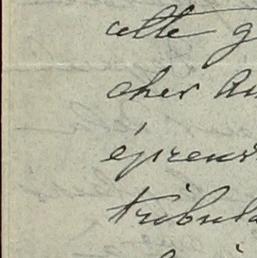 cette g
cher Au
épreuv
tribula